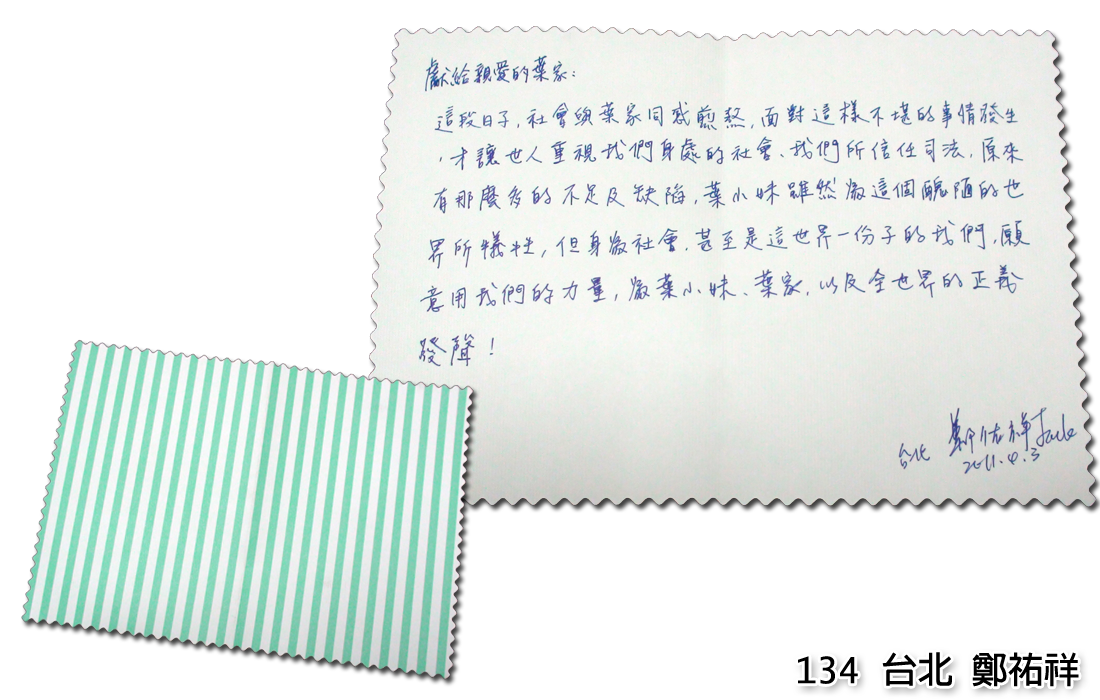 獻給親愛的葉家：
這段日子，社會與葉家同感煎熬，面對這樣不堪的事情發生
，才讓世人重視我們身處的社會、我們所信任司法，原來
有那麼多的不足及缺陷，葉小妹雖然為這個醜陋的世
界所犧牲，但身為社會，甚至是這世界一份子的我們，願
意用我們的力量，為葉小妹、葉家，以及全世界的正義
發聲！
台北 鄭祐祥 Jack
2011.4.3
134 台北 鄭祐祥